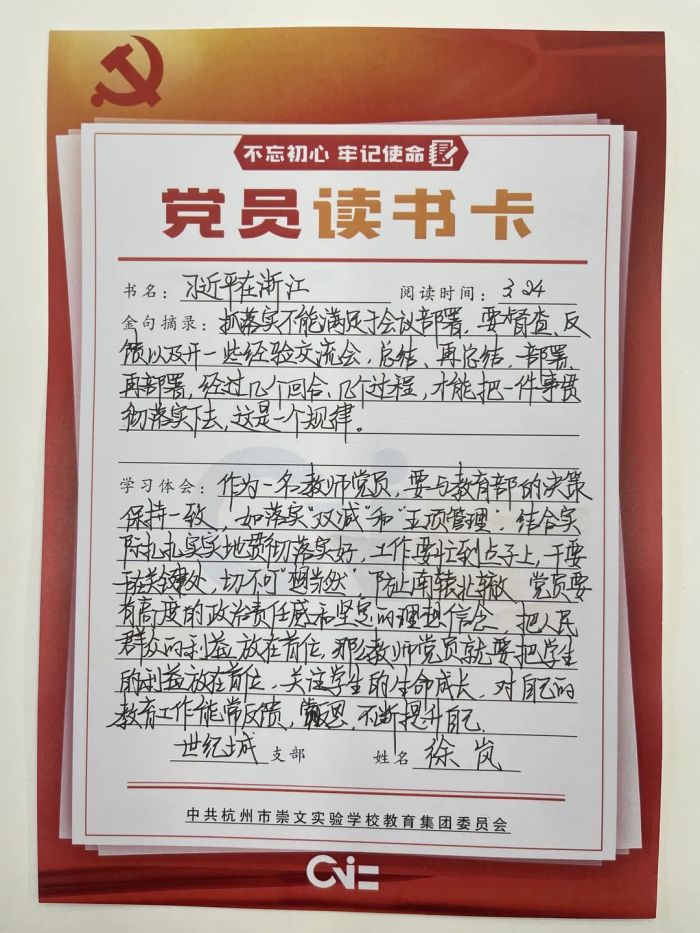 不忘初心 牢记使命
党员读书卡
书名：习近平在浙江 阅读时间：3.24
金句摘录：抓落实不能满足于会议部署，要督查、反
馈以及开一些经验交流会，总结、再总结，部署、
再部署，经过几个回合、几个过程，才能把一件事贯
彻落实下去，这是一个规律。
学习体会：作为一名教师党员，要与教育部的决策
保持一致，如落实“双减”和“五项管理”结合实
际扎扎实实地贯彻落实好，工作要忙到点子上，干要
干在关键处，切不可“想当然”，防止南辕北辙，党员要
有高度的政治责任感和坚定的理想信念，把人民
群众的利益放在首位，那么教师党员就要把学生
的利益放在首位，关注学生的生命成长，对自己的
教育工作能常反馈，常反思，不断提升自己。
世纪城支部 姓名 徐岚
中共杭州市崇文实验学校教育集团委员会